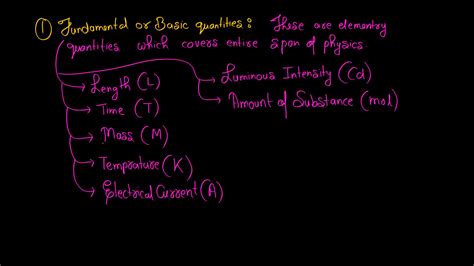 ① Fundamental or Basic quantities: These are elementry
quantities which covers entire span of physics
Length (L)
Time (T)
Mass (M)
Temprature (K)
Electrical Current (A)
Luminous Intensity (Cd)
Amount of Substance (mol)